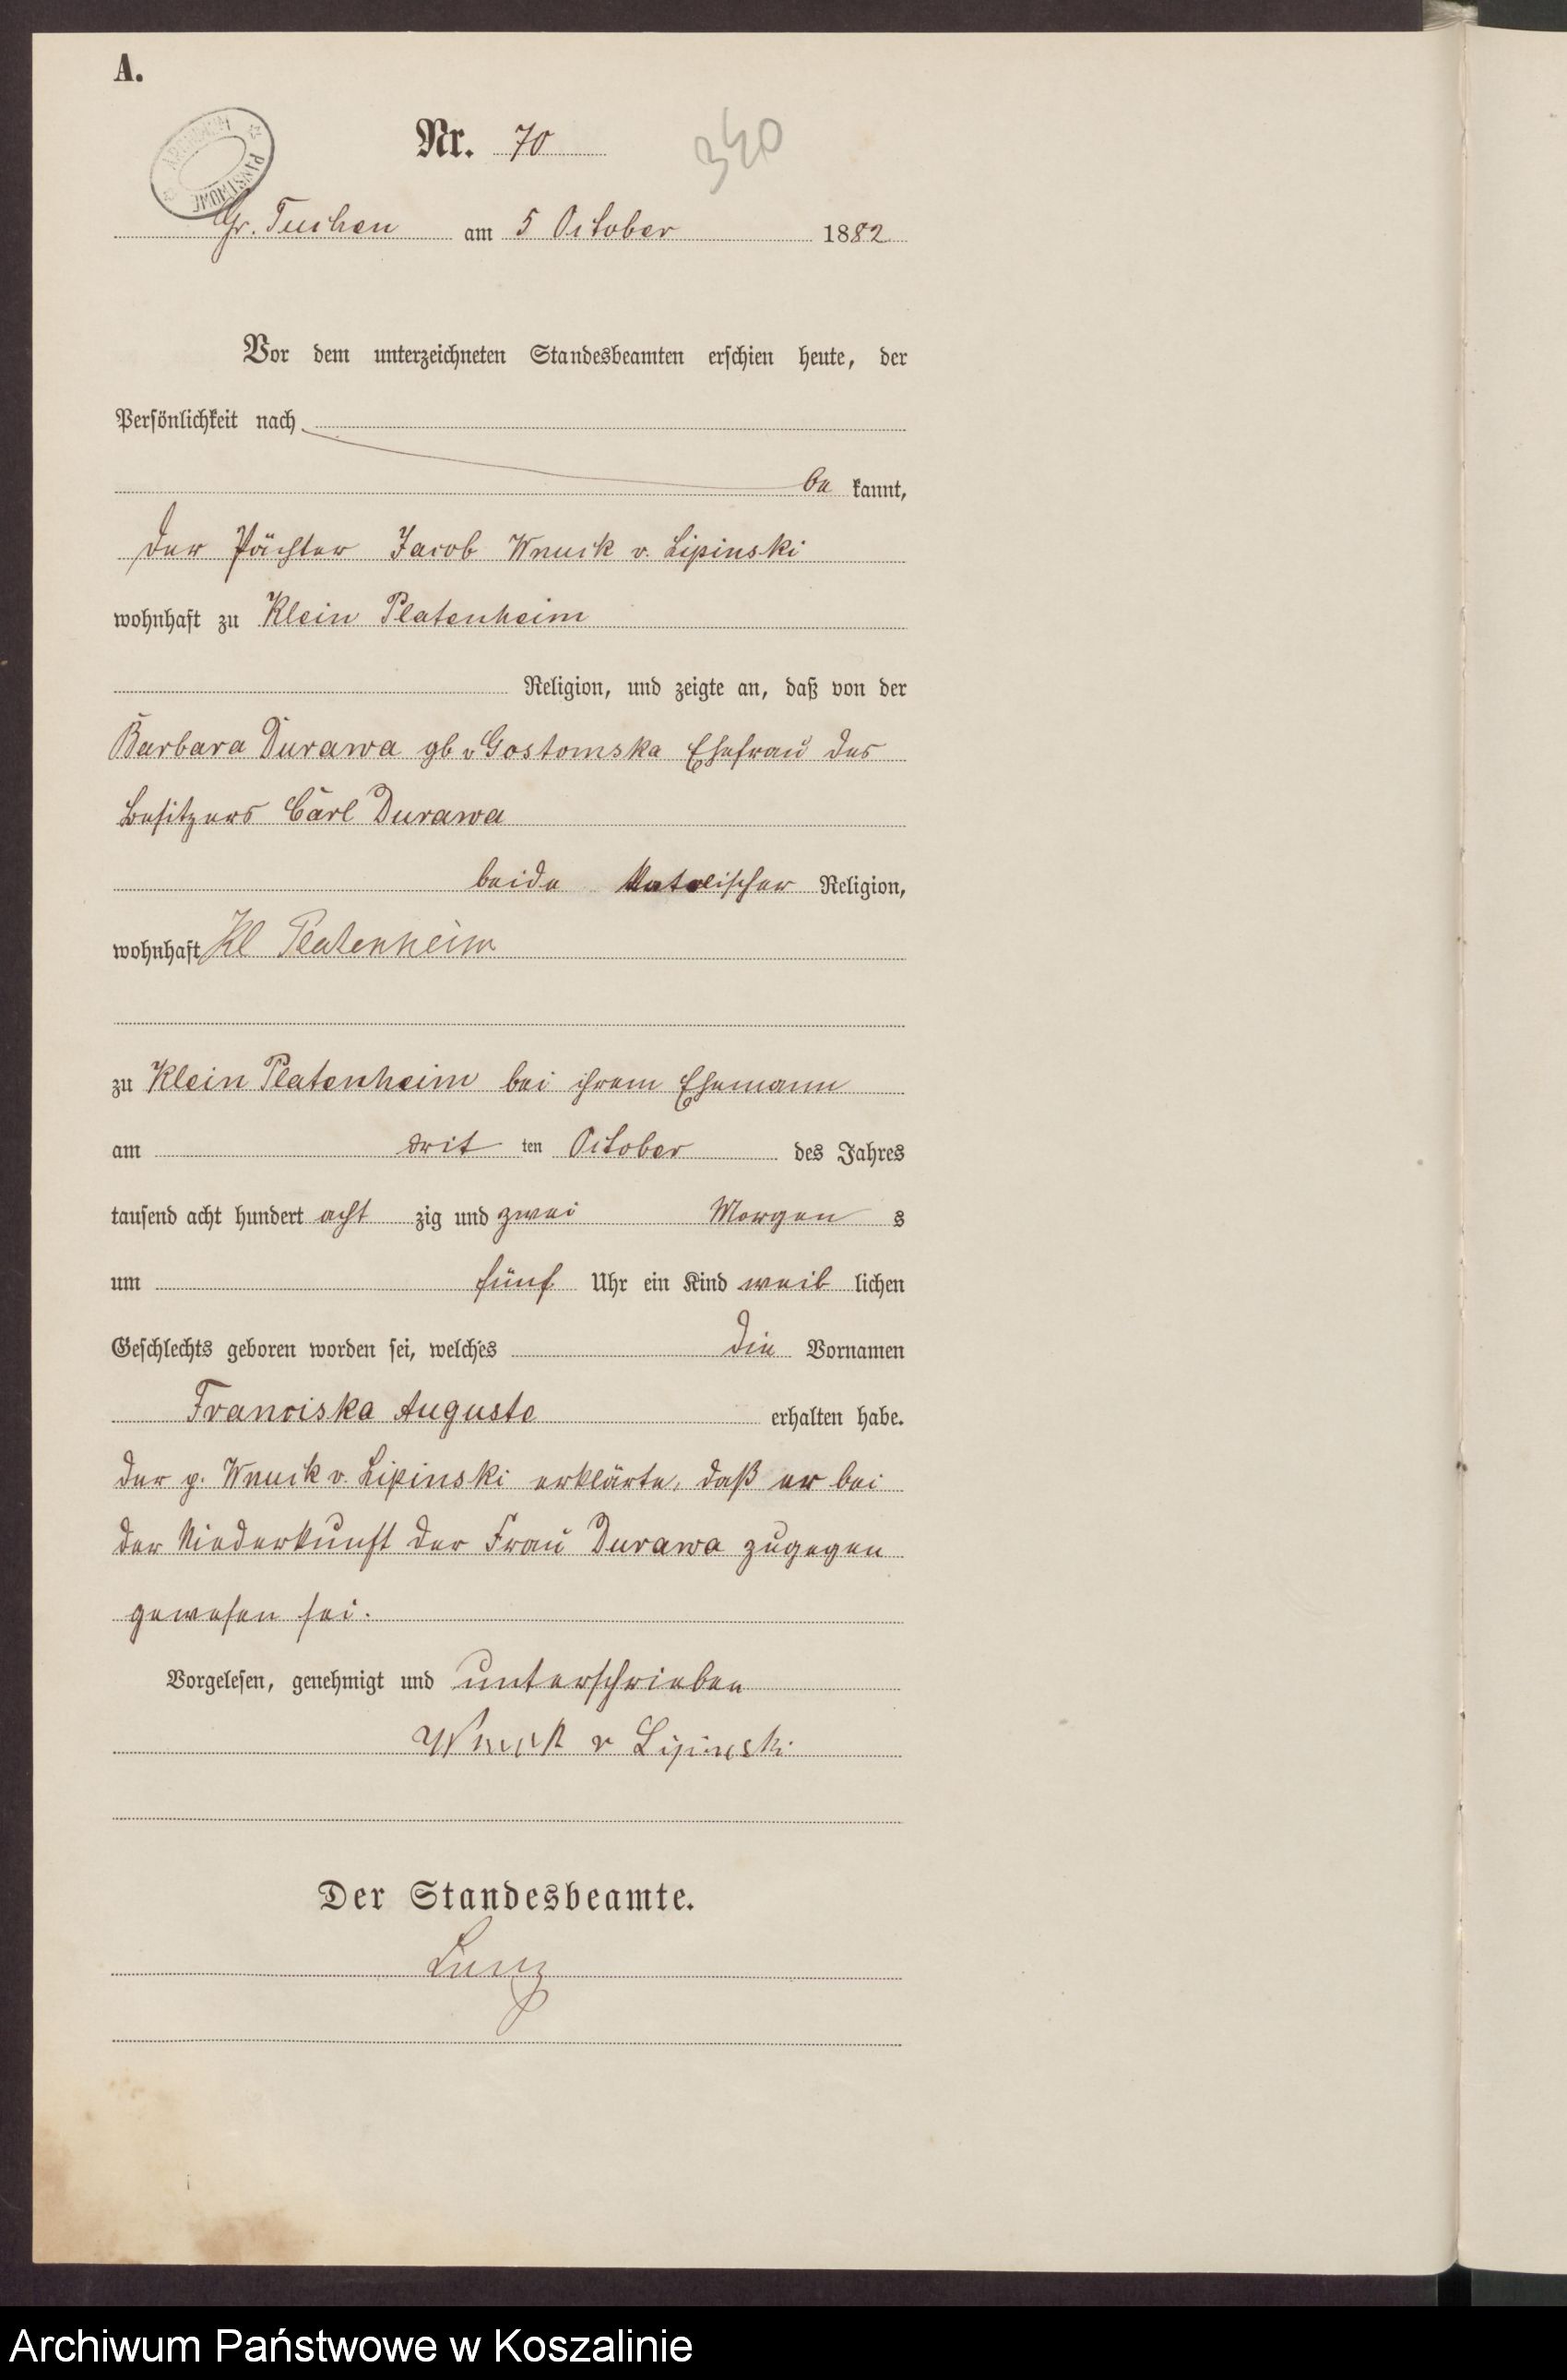 A.
ARCHIWUM PAŃSTWOWE
Nr. 70
340
Gr. Tuchen am 5 October 1882
Vor dem unterzeichneten Standesbeamten erschien heute, der
Persönlichkeit nach
be kannt,
der Pächter Jacob Wnuck v. Lipinski
wohnhaft zu Klein Platenheim
Religion, und zeigte an, daß von der
Barbara Durawa gb v Gostomska Ehefrau des
Besitzers Carl Durawa
beide katolischer Religion,
wohnhaft Kl Platenheim
zu Klein Platenheim bei ihrem Ehemann
am drit ten October des Jahres
tausend acht hundert acht zig und zwei Morgen s
um fünf Uhr ein Kind weib lichen
Geschlechts geboren worden sei, welches die Vornamen
Franciska Auguste erhalten habe.
Der p. Wnuck v. Lipinski erklärte, daß er bei
der Niederkunft der Frau Durawa zugegen
gewesen sei.
Vorgelesen, genehmigt und unterschrieben
Wnuck v Lipinski
Der Standesbeamte.
Archiwum Państwowe w Koszalinie